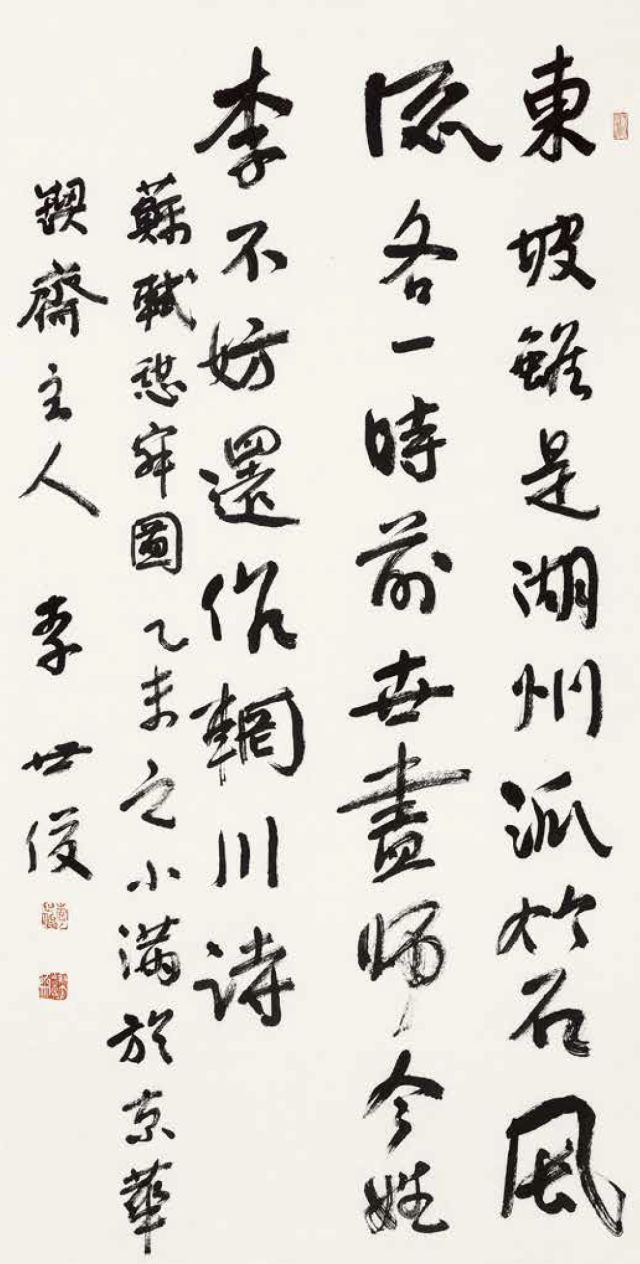 東坡雖是湖州派竹石風
流各一時前世畫師今姓
李不妨還作輞川詩
蘇軾憩寂圖乙未之小滿於京華
鍥齋主人 李世俊